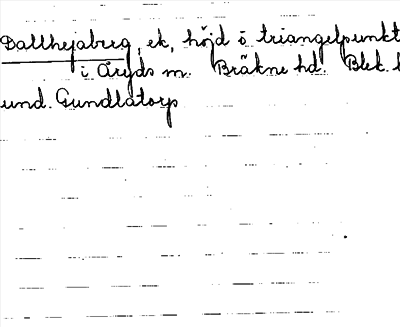 Dallhejaberg, ek, höjd ö triangelpunkt
i Åryds m. Bräkne hd. Blek. l
und. Gundlatorp